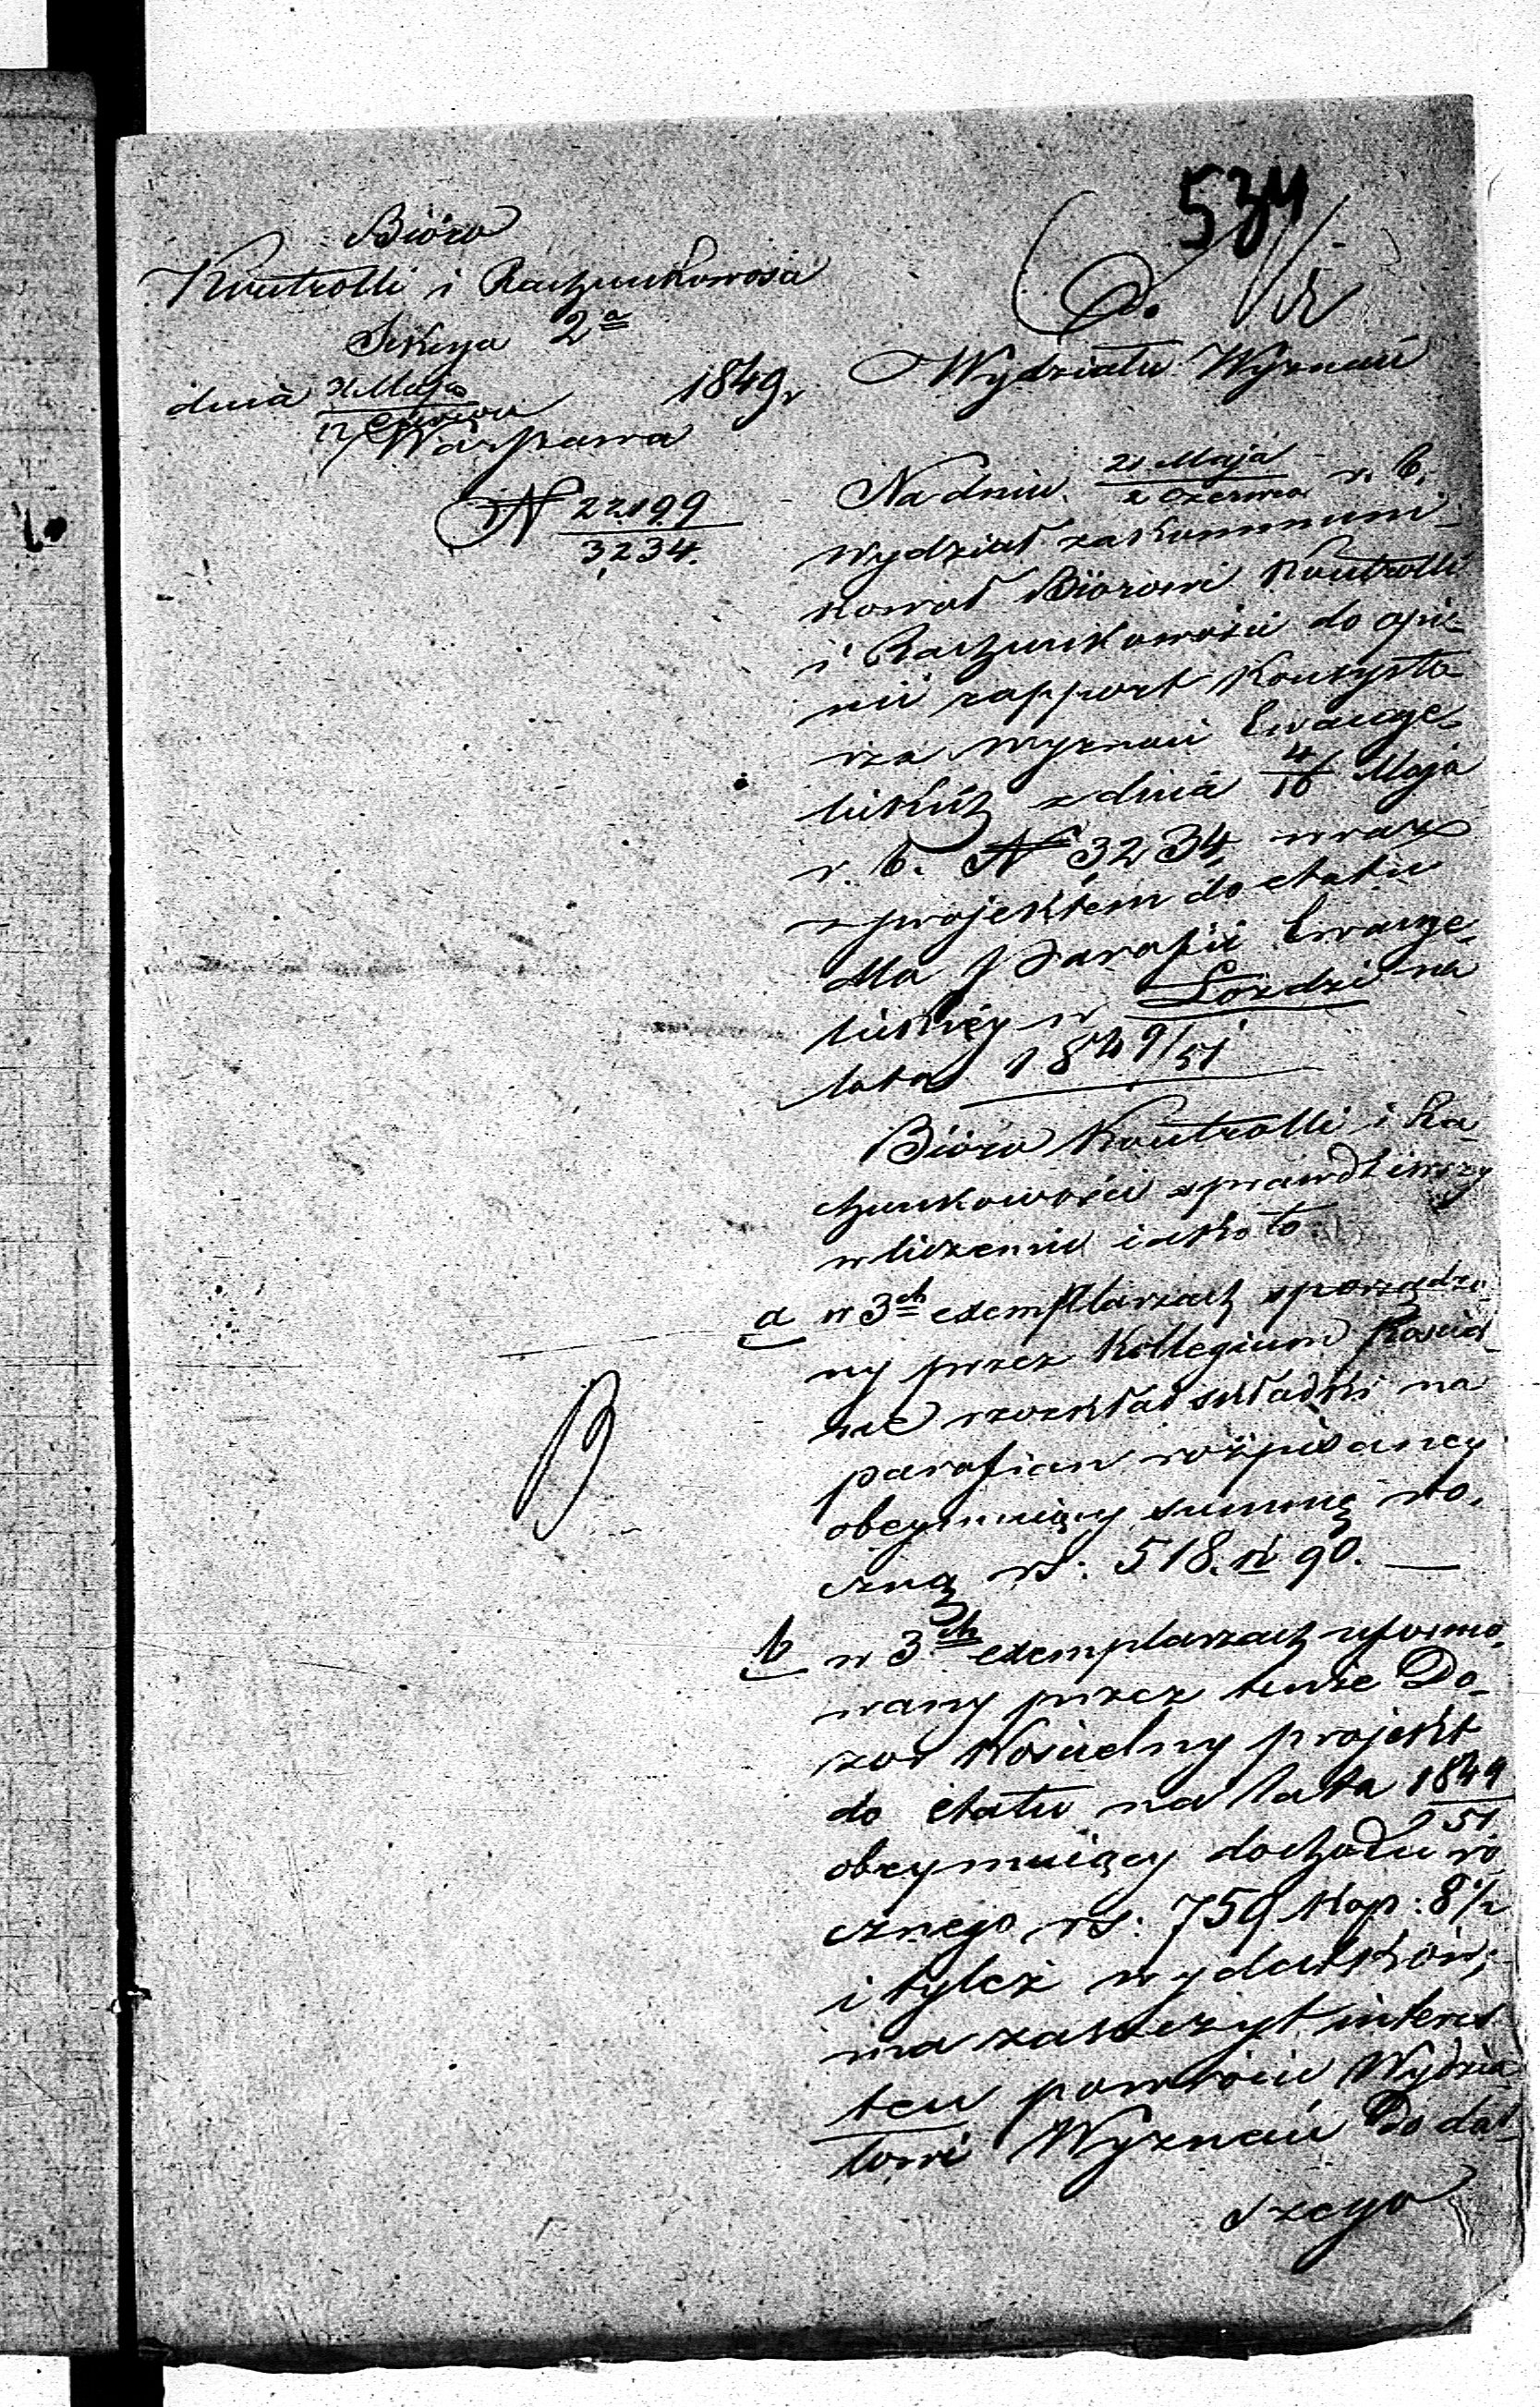 534
Bióro
Kontrolli i Rachunkowości
Sekcya 2a
dnia 31 Maja 1849 r
12 Czerwca
Warszawa
N 22199
3234.
Do
Wydziału Wyznań
Na dniu 21 Maja r. b.
2 Czerwca
Wydział zakommuni-
kował Biórowi Kontrolli
i Rachunkowości do opi-
nii rapport Konsysto-
rza wyznań Ewange-
lickich z dnia 4/16 Maja
r. b. N 3234 wraz
z projektem do etatu
dla Parafii Ewange-
lickiéy w Łodzi na
lata 1849/51
Bióro Kontrolli i Ra-
chunkowości sprawdziwszy
w liczeniu iako to
a w 3ch exemplarzach sporządzo-
ny przez Kollegium Kościel-
ne rozkład składki na
parafian rozpisaney
obeymuiący summę ro-
czną rs: 518. k 90. —
b w 3ch exemplarzach uformo-
wany przez tenże Do-
zór Kościelny projekt
do etatu na lata 1849
51
obeymuiący dochodu ro-
cznego rs: 759 kop: 8 1/2
i tyleż wydatków,
ma zaszczyt interes
ten powrócić Wydzia-
łowi Wyznań Do dal-
szego